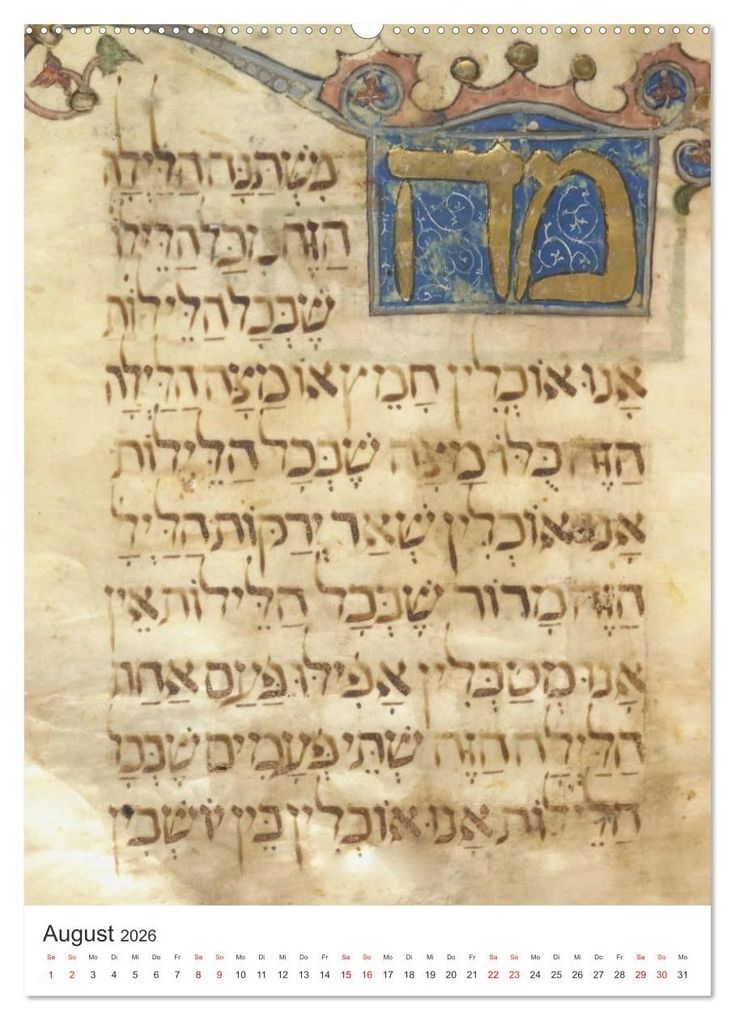 מה
מִשְׁתַּנָּה הַלַּיְלָה
הַזֶּה מִכָּל הַלֵּילוֹ
שֶׁבְּכָל הַלֵּילוֹת
אָנוּ אוֹכְלִין חָמֵץ אוֹ מַצָּה הַלַּיְלָה
הַזֶּה כֻּלּוֹ מַצָּה שֶׁבְּכָל הַלֵּילוֹת
אָנוּ אוֹכְלִין שְׁאַר יְרָקוֹת הַלַּיְלָ
הַזֶּה מָרוֹר שֶׁבְּכָל הַלֵּילוֹת אֵין
אָנוּ מְטַבְּלִין אֲפִילוּ פַּעַם אַחַת
הַלַּיְלָה הַזֶּה שְׁתֵּי פְּעָמִים שֶׁבְּכָ
הַלֵּילוֹת אָנוּ אוֹכְלִין בֵּין יוֹשְׁבִין
August 2026
Sa So Mo Di Mi Do Fr Sa So Mo Di Mi Do Fr Sa So Mo Di Mi Do Fr Sa So Mo Di Mi Do Fr Sa So Mo
1 2 3 4 5 6 7 8 9 10 11 12 13 14 15 16 17 18 19 20 21 22 23 24 25 26 27 28 29 30 31